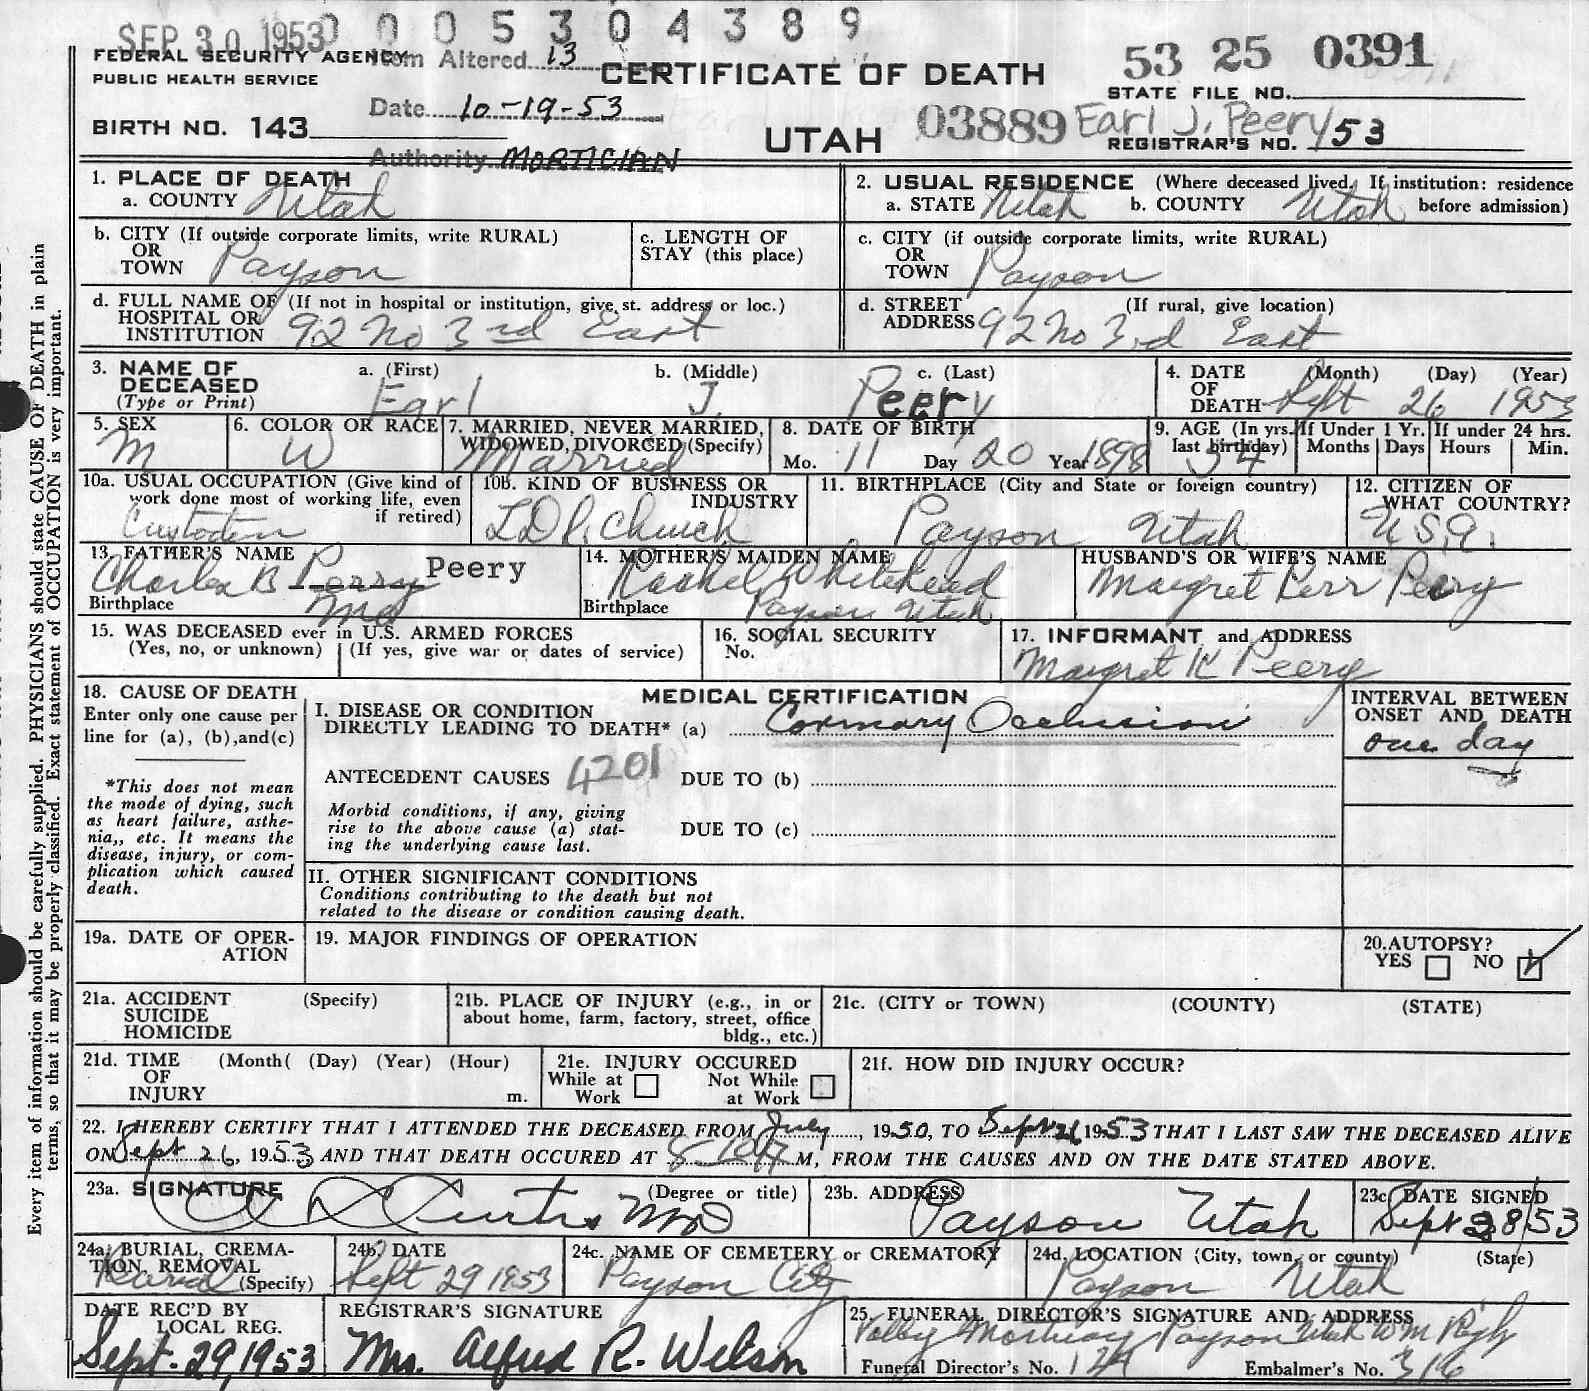 SEP 30 1953 0 0 0 5 3 0 4 3 8 9
FEDERAL SECURITY AGENCY
PUBLIC HEALTH SERVICE
Item Altered 13
Date 10-19-53
Authority MORTICIAN
BIRTH NO. 143
CERTIFICATE OF DEATH
UTAH
03889
53 25 0391
STATE FILE NO.
Earl J. Peery
REGISTRAR'S NO. 153
1. PLACE OF DEATH
a. COUNTY Utah
2. USUAL RESIDENCE (Where deceased lived. If institution: residence
a. STATE Utah b. COUNTY Utah before admission)
b. CITY (If outside corporate limits, write RURAL)
OR
TOWN Payson
c. LENGTH OF
STAY (this place)
c. CITY (if outside corporate limits, write RURAL)
OR
TOWN Payson
d. FULL NAME OF (If not in hospital or institution, give st. address or loc.)
HOSPITAL OR
INSTITUTION 92 No 3rd East
d. STREET (If rural, give location)
ADDRESS 92 No 3rd East
3. NAME OF
DECEASED
(Type or Print)
a. (First) b. (Middle) c. (Last)
Earl J. Peery
4. DATE (Month) (Day) (Year)
OF
DEATH Sept 26 1953
5. SEX
M
6. COLOR OR RACE
W
7. MARRIED, NEVER MARRIED,
WIDOWED, DIVORCED (Specify)
Married
8. DATE OF BIRTH
Mo. 11 Day 20 Year 1898
9. AGE (In yrs.
last birthday) 54
If Under 1 Yr.
Months Days
If under 24 hrs.
Hours Min.
10a. USUAL OCCUPATION (Give kind of
work done most of working life, even
if retired)
Custoden
10b. KIND OF BUSINESS OR
INDUSTRY
L.D.S. Church
11. BIRTHPLACE (City and State or foreign country)
Payson Utah
12. CITIZEN OF
WHAT COUNTRY?
U.S.A.
13. FATHER'S NAME
Charles B Perry Peery
Birthplace Mo
14. MOTHER'S MAIDEN NAME
Rachel Whitehead
Birthplace Payson Utah
HUSBAND'S OR WIFE'S NAME
Margret Kerr Peery
15. WAS DECEASED ever in U.S. ARMED FORCES
(Yes, no, or unknown) (If yes, give war or dates of service)
16. SOCIAL SECURITY
No.
17. INFORMANT and ADDRESS
Margret K Peery
18. CAUSE OF DEATH
Enter only one cause per
line for (a), (b), and (c)
*This does not mean
the mode of dying, such
as heart failure, asthe-
nia,, etc. It means the
disease, injury, or com-
plication which caused
death.
MEDICAL CERTIFICATION
I. DISEASE OR CONDITION
DIRECTLY LEADING TO DEATH* (a) Coronary Occlusion
ANTECEDENT CAUSES 4201 DUE TO (b)
Morbid conditions, if any, giving
rise to the above cause (a) stat-
ing the underlying cause last.
DUE TO (c)
INTERVAL BETWEEN
ONSET AND DEATH
one day
II. OTHER SIGNIFICANT CONDITIONS
Conditions contributing to the death but not
related to the disease or condition causing death.
19a. DATE OF OPER-
ATION
19. MAJOR FINDINGS OF OPERATION
20. AUTOPSY?
YES NO
21a. ACCIDENT (Specify)
SUICIDE
HOMICIDE
21b. PLACE OF INJURY (e.g., in or
about home, farm, factory, street, office
bldg., etc.)
21c. (CITY or TOWN) (COUNTY) (STATE)
21d. TIME (Month( (Day) (Year) (Hour)
OF
INJURY m.
21e. INJURY OCCURED
While at Work Not While at Work
21f. HOW DID INJURY OCCUR?
22. I HEREBY CERTIFY THAT I ATTENDED THE DECEASED FROM July, 1950, TO Sept 26 1953 THAT I LAST SAW THE DECEASED ALIVE
ON Sept 26, 1953 AND THAT DEATH OCCURED AT M, FROM THE CAUSES AND ON THE DATE STATED ABOVE.
23a. SIGNATURE (Degree or title)
Curtis MD
23b. ADDRESS
Payson Utah
23c. DATE SIGNED
Sept 28/53
24a. BURIAL, CREMA-
TION, REMOVAL
(Specify)
Burial
24b. DATE
Sept 29 1953
24c. NAME OF CEMETERY or CREMATORY
Payson City
24d. LOCATION (City, town, or county) (State)
Payson Utah
DATE REC'D BY
LOCAL REG.
Sept. 29, 1953
REGISTRAR'S SIGNATURE
Mrs. Alfred R. Wilson
25. FUNERAL DIRECTOR'S SIGNATURE AND ADDRESS
Valley Mortuary Payson Utah
Funeral Director's No. Embalmer's No. 316
Every item of information should be carefully supplied. PHYSICIANS should state CAUSE OF DEATH in plain
terms, so that it may be properly classified. Exact statement of OCCUPATION is very important.